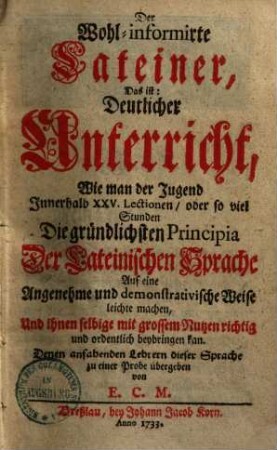 Der
Wohl-informirte
Lateiner,
Das ist:
Deutlicher
Unterricht,
Wie man der Jugend
Innerhalb XXV. Lectionen / oder so viel
Stunden
Die gründlichsten Principia
Der Lateinischen Sprache
Auf eine
Angenehme und demonstrativische Weise
leichte machen,
Und Ihnen selbige mit grossem Nutzen richtig
und ordentlich beybringen kan.
Denen anfahenden Lehrern dieser Sprache
zu einer Probe übergeben
von
E. C. M.
Breßlau, bey Johann Jacob Korn.
Anno 1733.